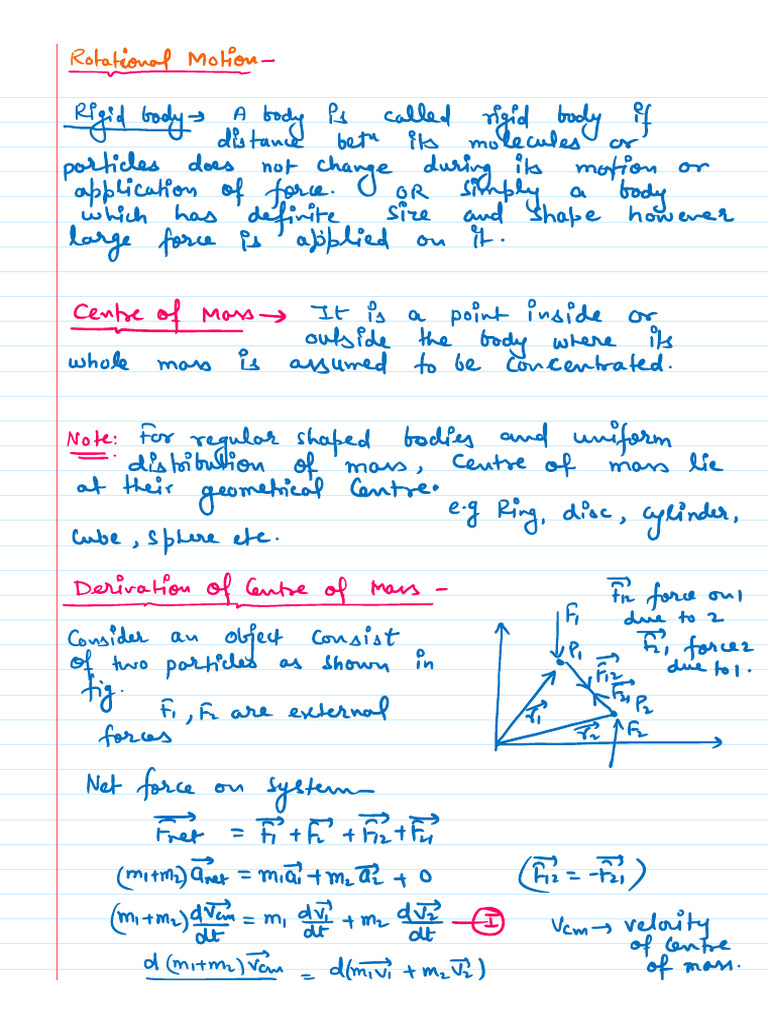 Rotational Motion -
Rigid body → A body is called rigid body if
distance betⁿ its molecules or
particles does not change during its motion or
application of force. OR simply a body
which has definite size and shape however
large force is applied on it.
Centre of Mass → It is a point inside or
outside the body where its
whole mass is assumed to be concentrated.
Note: For regular shaped bodies and uniform
distribution of mass, centre of mass lie
at their geometrical centre.
e.g Ring, disc, cylinder,
cube, sphere etc.
Derivation of Centre of Mass -
F⃗12 force on 1
due to 2
F⃗21 force 2
due to 1.
Consider an object consist
of two particles as shown in
fig.
F1, F2 are external
forces
F1
P1
F⃗12
F⃗21
P2
r⃗1
r⃗2
F2
Net force on system—
F⃗net = F⃗1 + F⃗2 + F⃗12 + F⃗21
(m1+m2) a⃗net = m1a⃗1 + m2a⃗2 + 0 (F⃗12 = -F⃗21)
(m1+m2) dv⃗cm/dt = m1 dv⃗1/dt + m2 dv⃗2/dt — I
vcm → velocity
of centre
of mass.
d(m1+m2)v⃗cm = d(m1v⃗1 + m2v⃗2)